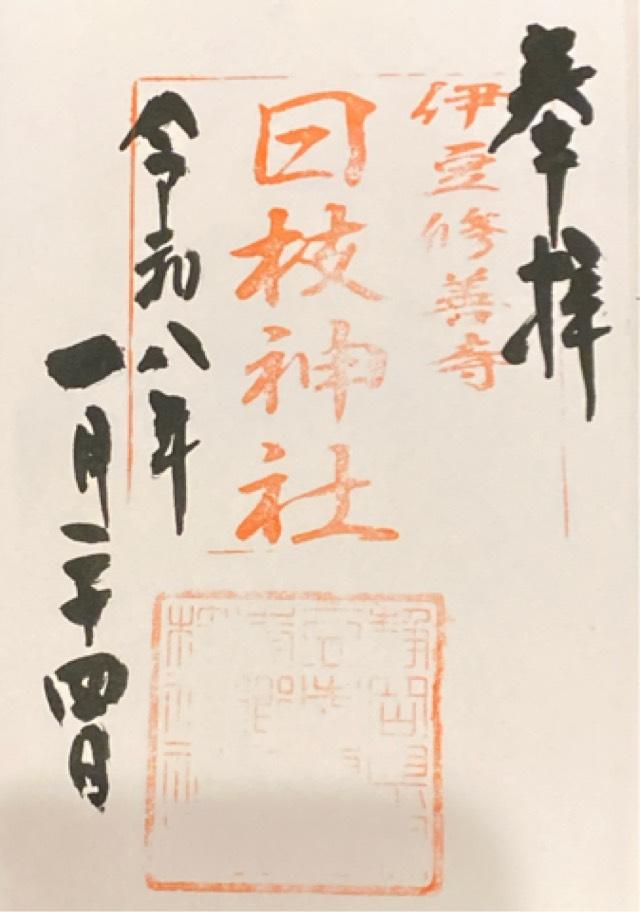 奉拝
伊豆修善寺
日枝神社
令和八年
一月二十四日
静岡県